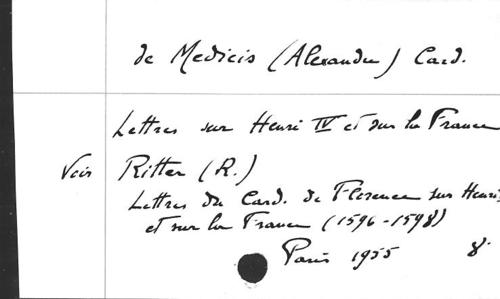 de Medicis (Alexandre) Card.
Lettres sur Henri IV et sur la France
Voir Ritter (R.)
Lettres du Card. de Florence sur Henri
et sur la France (1596-1598)
Paris 1955 8°